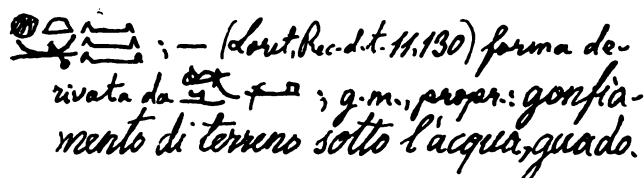 ; — (Lorit, Rec. d. t. 11, 130) forma de-
rivata da ; g. m., propr.: gonfia-
mento di terreno sotto l'acqua, guado.